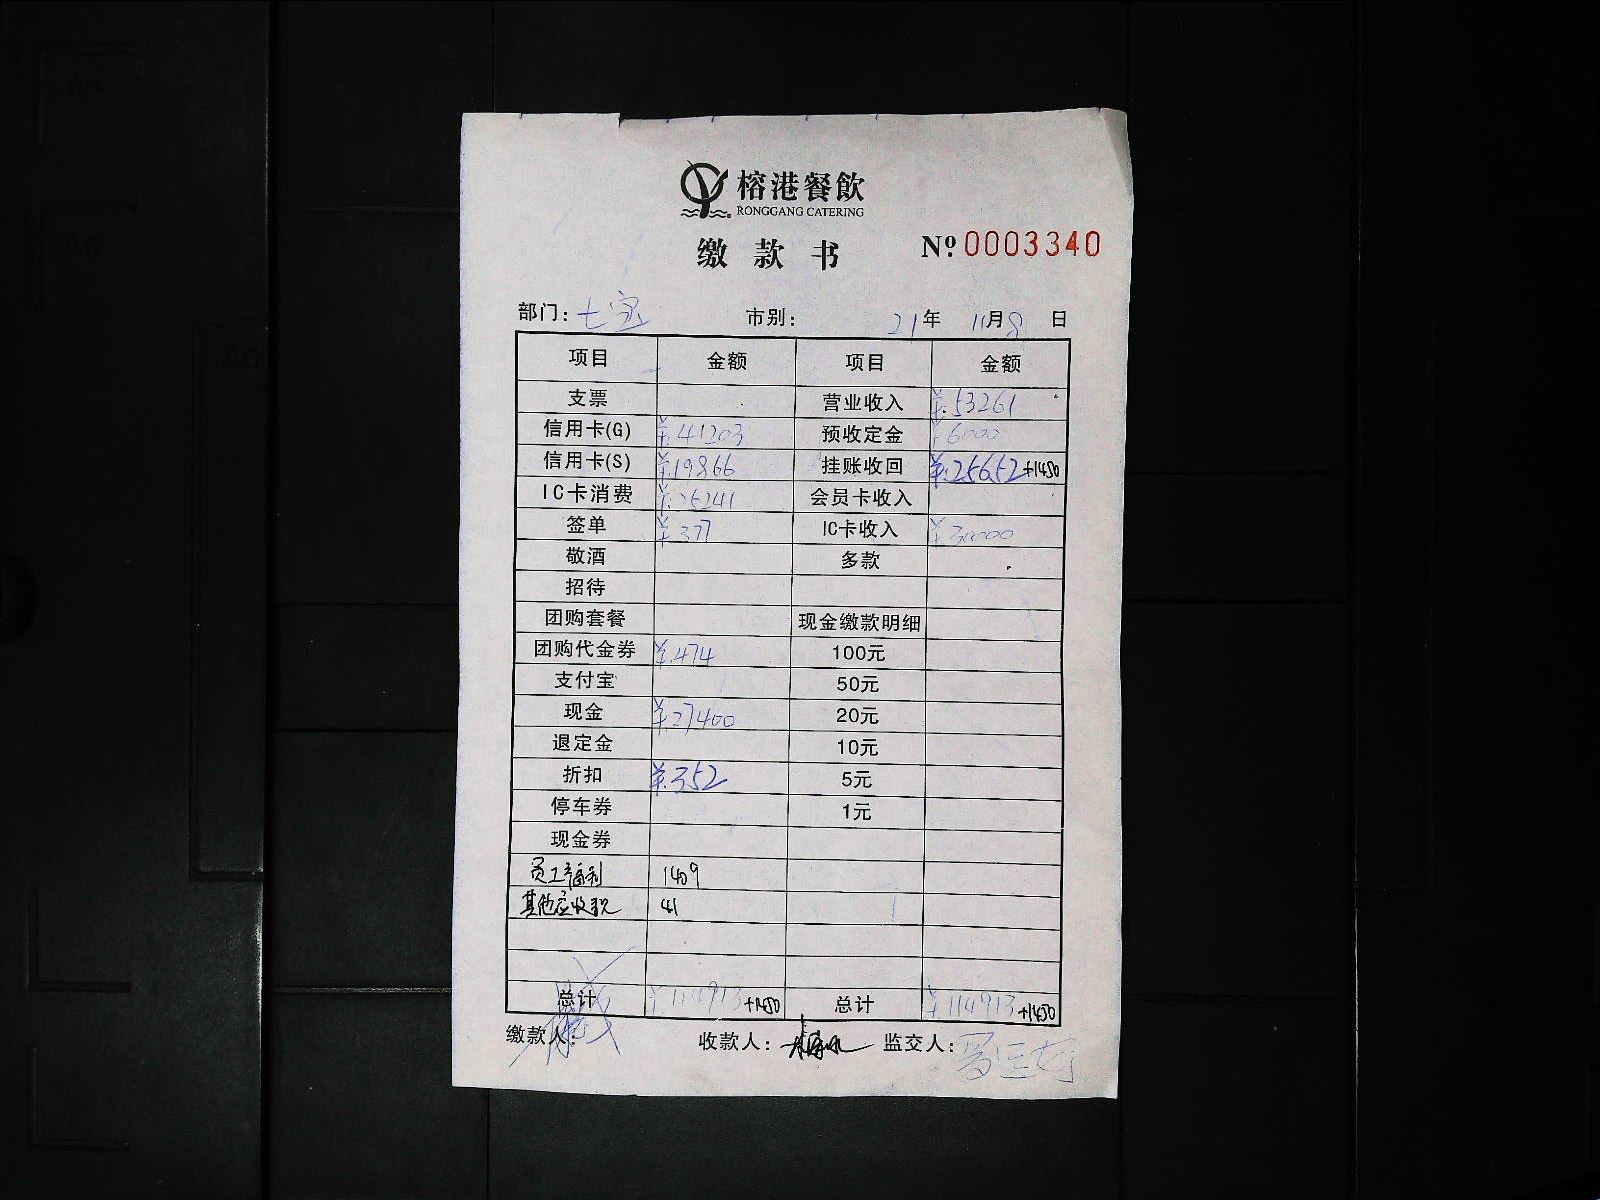 榕港餐飲
RONGGANG CATERING
缴款书 Nº 0003340
部门: 七宝 市别: 21年 11月8日
项目 金额 项目 金额
支票 营业收入 ¥53261
信用卡(G) ¥41203 预收定金 ¥6000
信用卡(S) ¥19866 挂账收回 ¥25652+1450
IC卡消费 ¥25241 会员卡收入
签单 ¥377 IC卡收入 ¥30000
敬酒 多款
招待
团购套餐 现金缴款明细
团购代金券 ¥474 100元
支付宝 50元
现金 ¥27400 20元
退定金 10元
折扣 ¥352 5元
停车券 1元
现金券
员工福利 1409
其他应收款 41
总计 ¥114913+1450 总计 ¥114913+1450
缴款人: 收款人: 监交人: